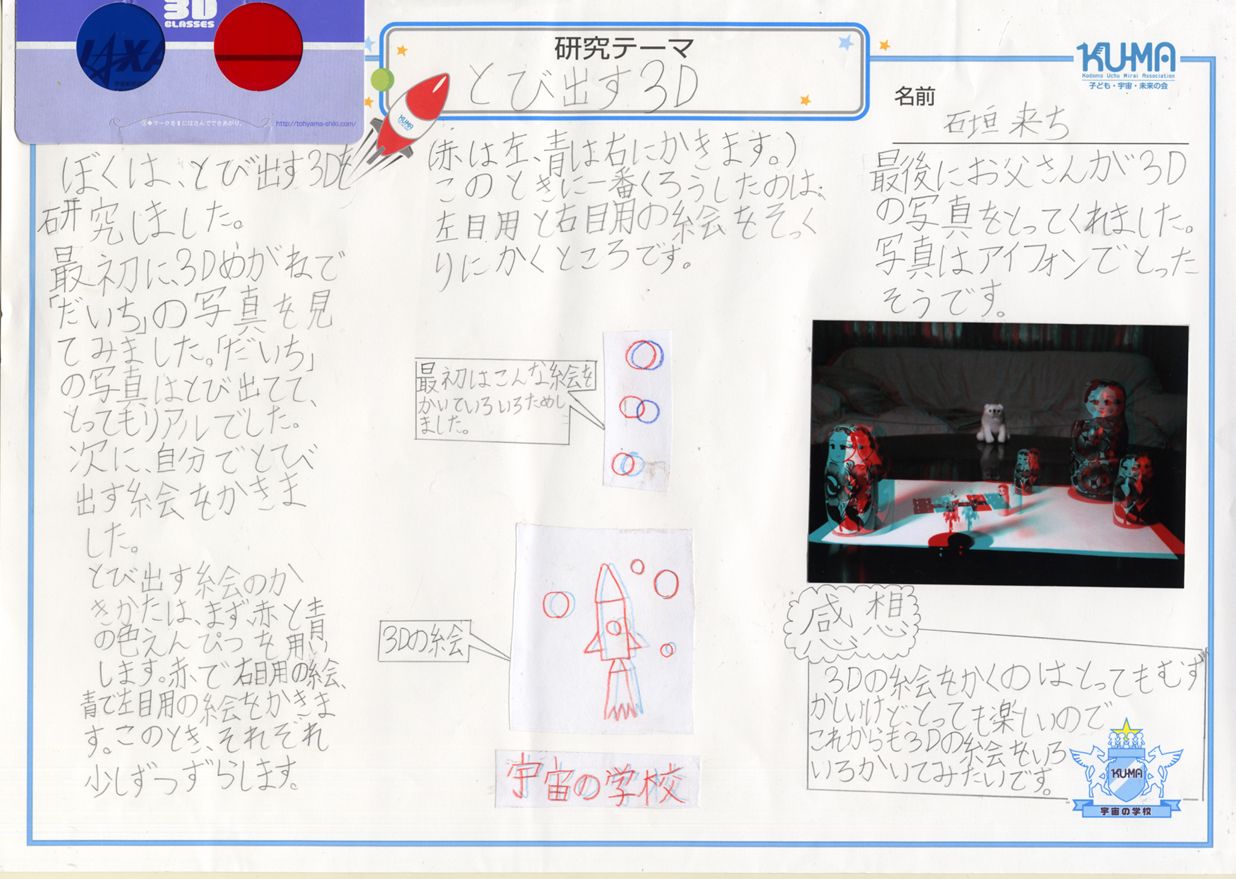 3D
GLASSES
JAXA
http://tohyama-shiki.com/
研究テーマ
とび出す3D
KUMA
KU-MA
Kodomo Uchu Mirai Association
子ども・宇宙・未来の会
名前
石垣 来ち
ぼくは、とび出す3Dを
研究しました。
最初に、3Dめがねで
「だいち」の写真を見
てみました。「だいち」
の写真はとび出てて、
とってもリアルでした。
次に、自分でとび
出す絵をかきま
した。
とび出す絵のか
きかたは、まず、赤と青
の色えんぴつを用い
します。赤で右目用の絵、
青で左目用の絵をかきま
す。このとき、それぞれ
少しずつずらします。
(赤は左、青は右にかきます。)
このときに一番くろうしたのは、
左目用と右目用の絵をそっく
りにかくところです。
最初はこんな絵を
かいていろいろためし
ました。
3Dの絵
宇宙の学校
最後にお父さんが3D
の写真をとってくれました。
写真はアイフォンでとった
そうです。
感想
3Dの絵をかくのはとってもむず
かしいけど、とっても楽しいので
これからも3Dの絵をいろ
いろかいてみたいです。
KUMA
宇宙の学校